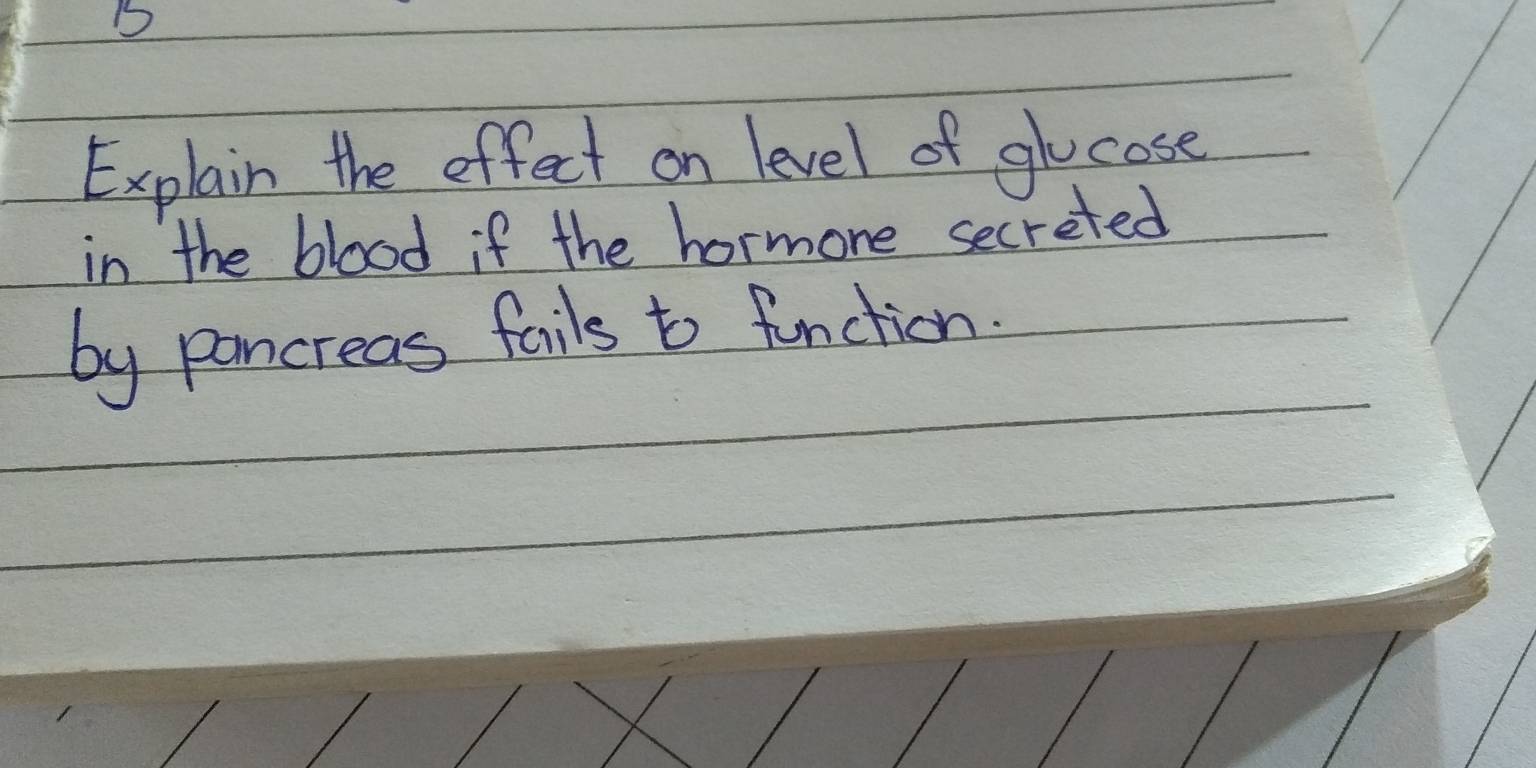 Explain the effect on level of glucose
in the blood if the hormone secreted
by pancreas fails to function.